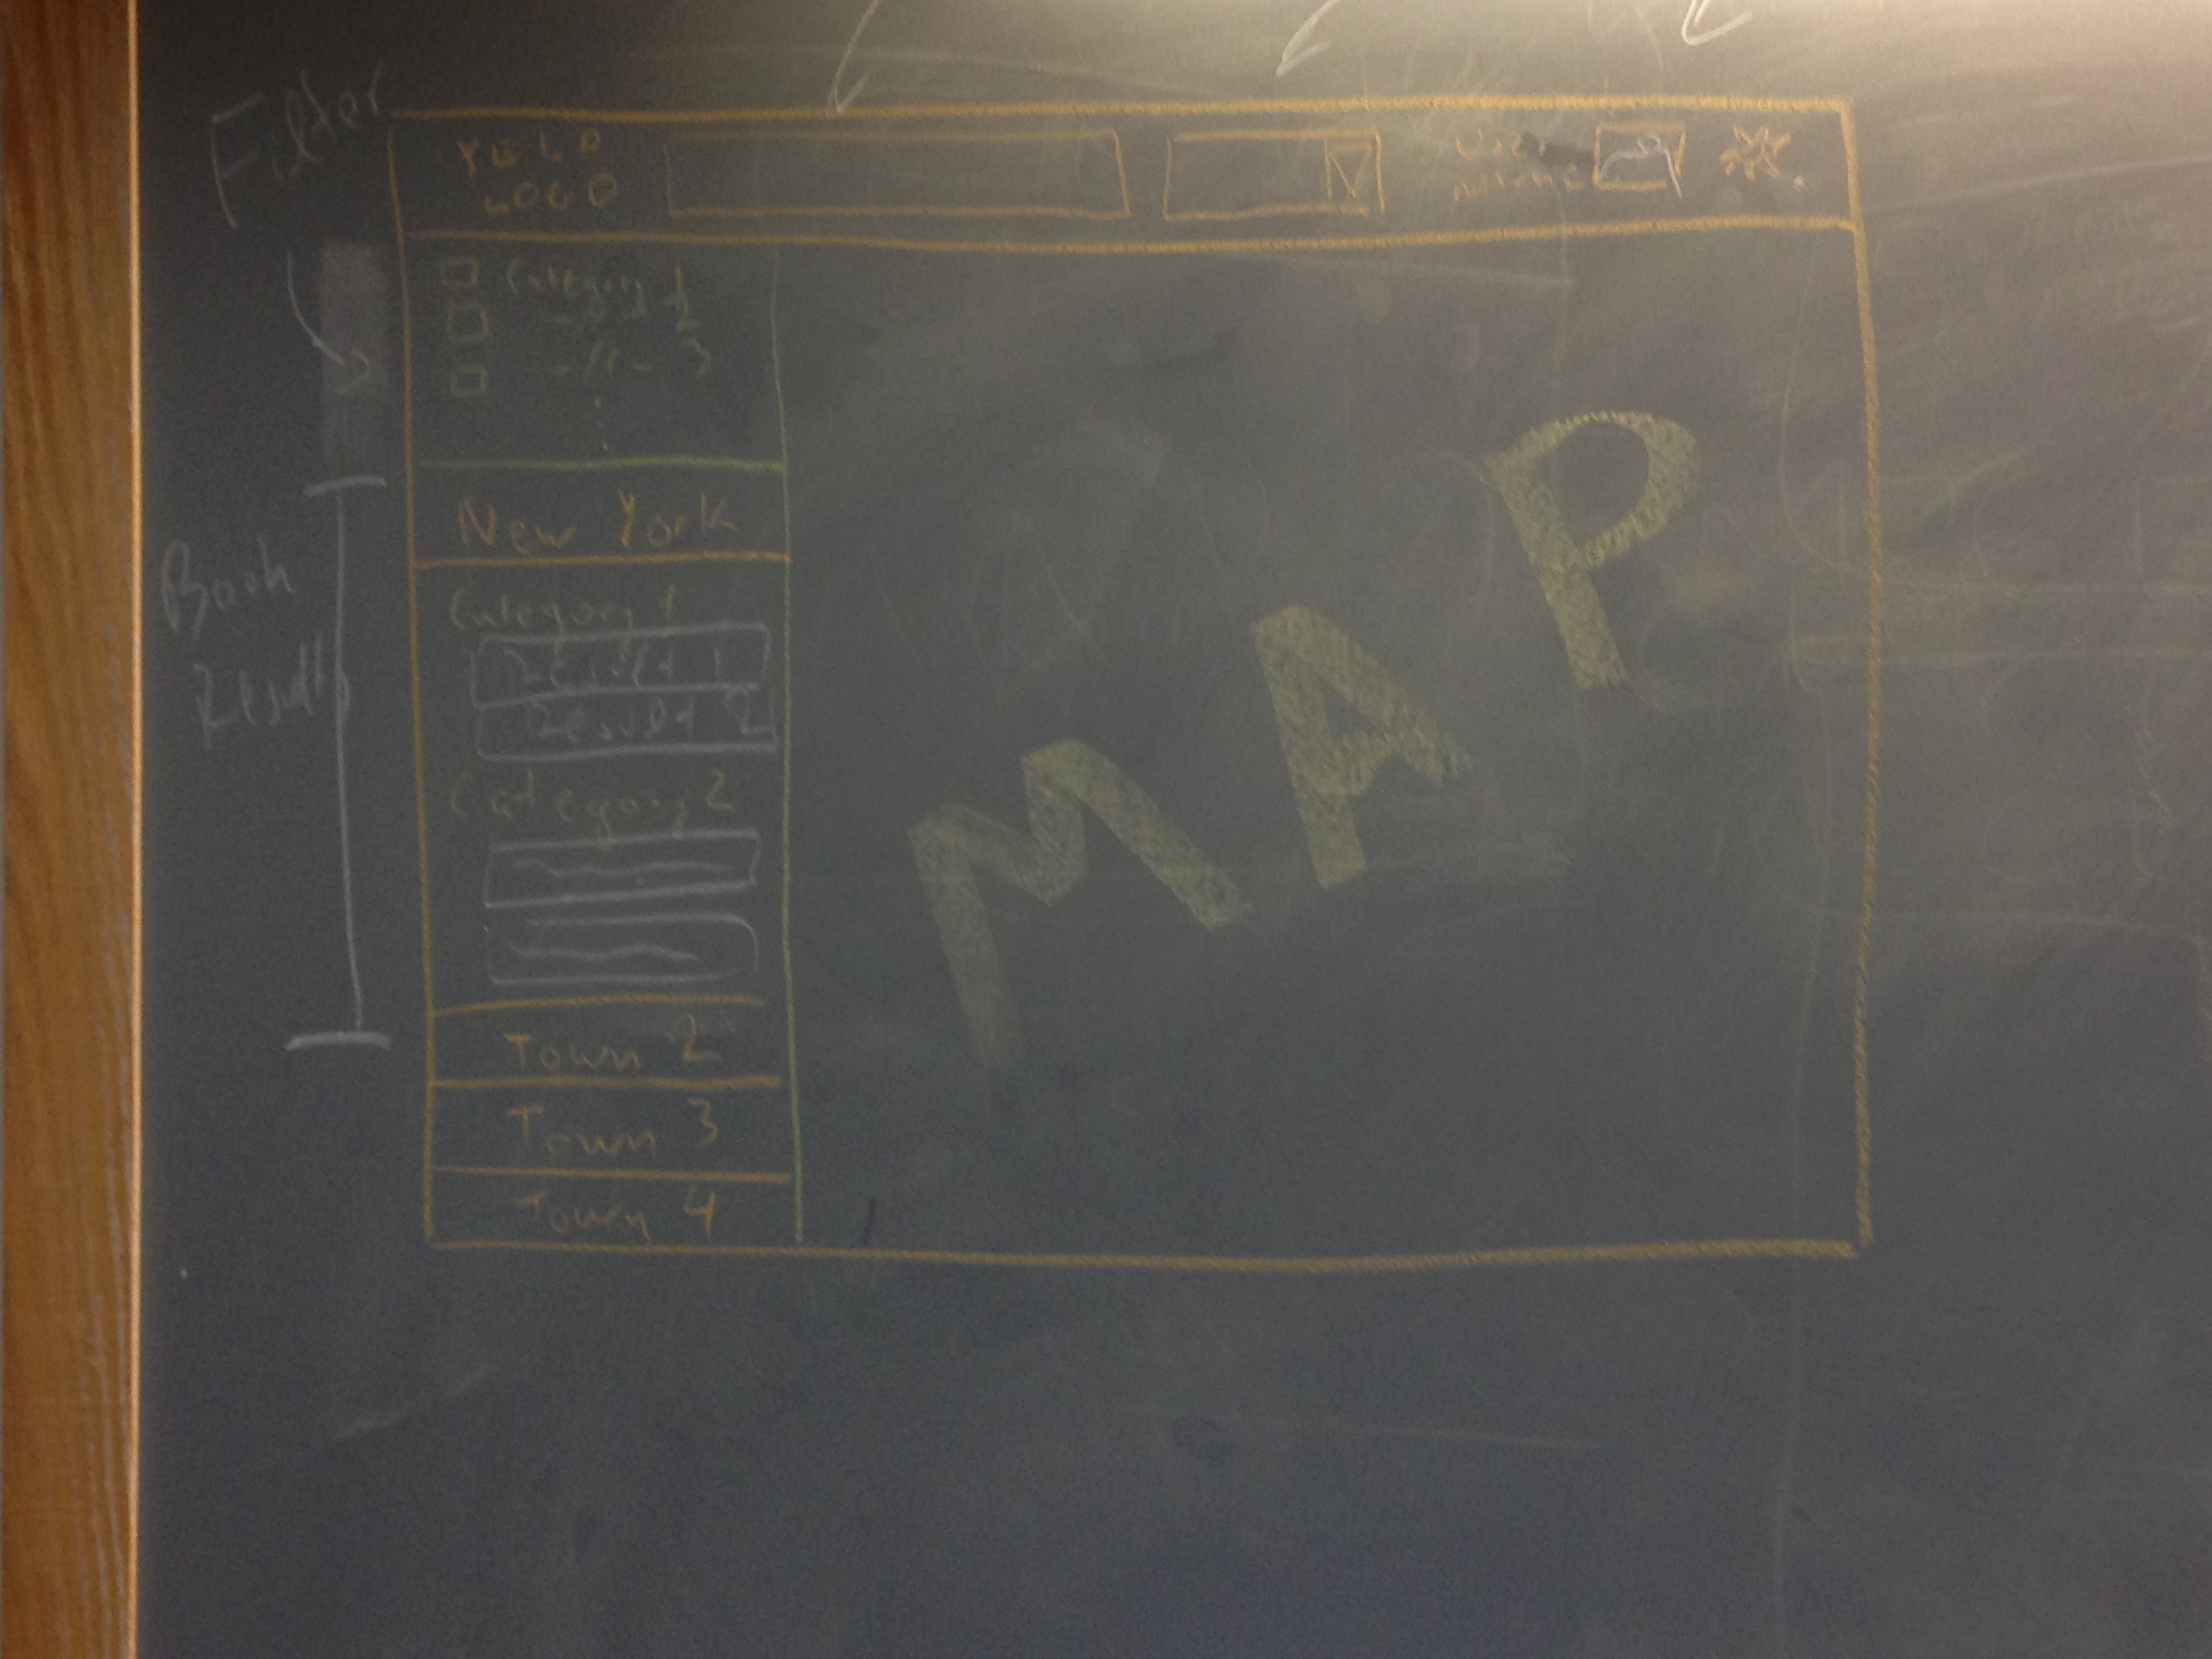 Filter
YELP
LOGO
User
name
Category 1
-//- 2
-//- 3
New York
Book
Result
Category 1
Result 1
Result 2
Category 2
Town 2
Town 3
Town 4
MAP